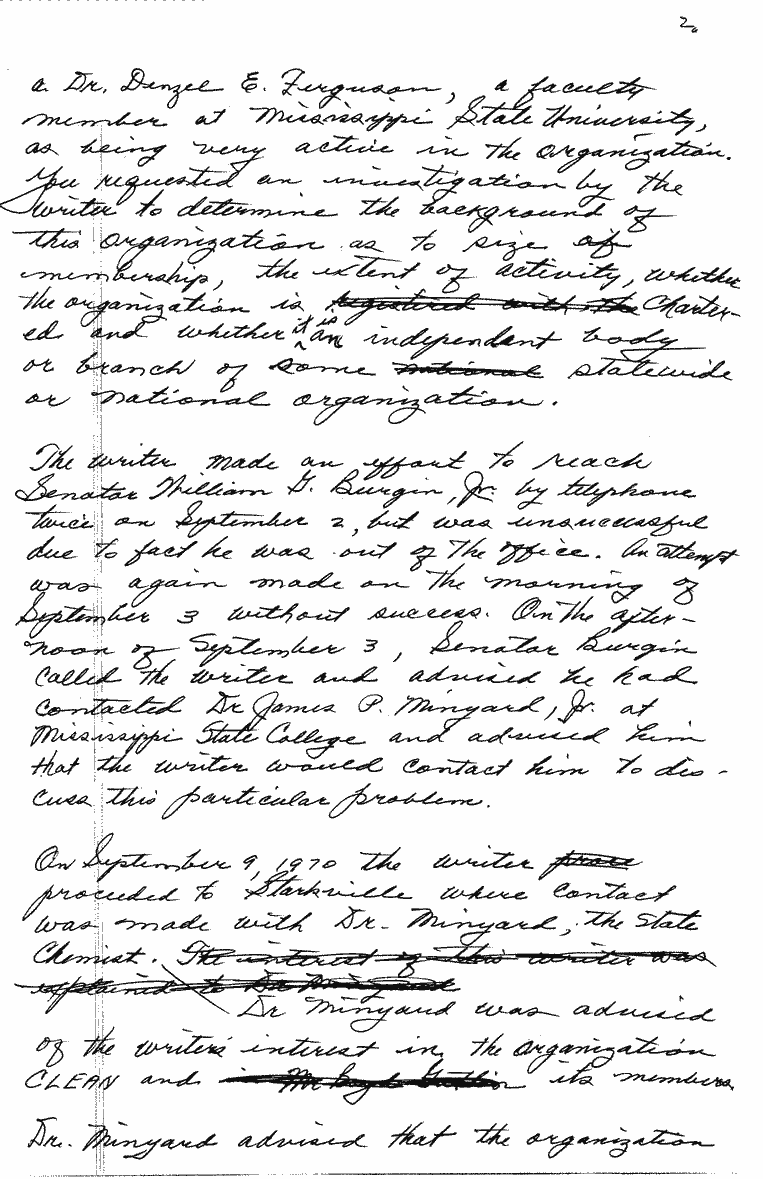 2.
a Dr. Denzel E. Ferguson, a faculty
member at Mississippi State University,
as being very active in the organization.
You requested an investigation by the
writer to determine the background of
this organization as to size of
membership, the extent of activity, whether
the organization is registered with the Charter-
ed and whether it is an independent body
or branch of some national statewide
or national organization.
The writer made an effort to reach
Senator William G. Burgin, Jr. by telephone
twice on September 2, but was unsuccessful
due to fact he was out of the office. An attempt
was again made on the morning of
September 3 without success. On the after-
noon of September 3, Senator Burgin
called the writer and advised he had
contacted Dr James P. Minyard, Jr. at
Mississippi State College and advised him
that the writer would contact him to dis-
cuss this particular problem.
On September 9, 1970 the writer proce
proceeded to Starkville where contact
was made with Dr. Minyard, the State
Chemist. The interest of this writer was
explained to Dr Minyard
Dr Minyard was advised
of the writer's interest in the organization
CLEAN and its members.
Dr. Minyard advised that the organization